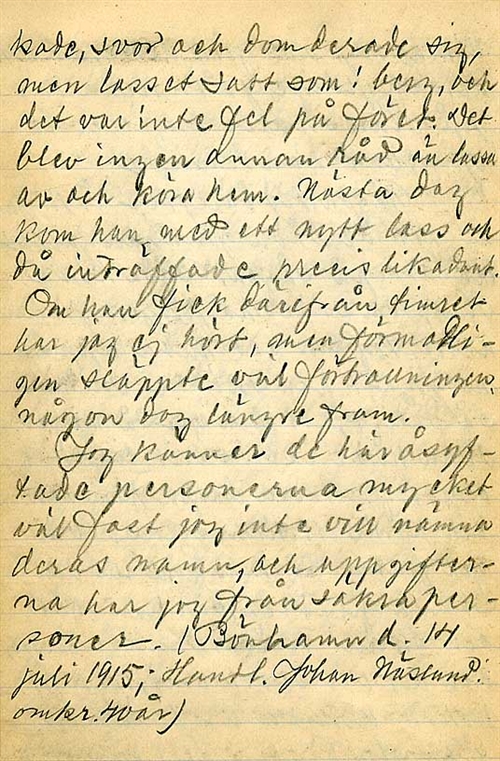 kade, svor och domderade sig,
men lasset satt som i berg, och
det var inte fel på föret. Det
blev ingen annan råd än lassa
av och köra hem. Nästa dag
kom han med ett nytt lass och
då inträffade precis likadant.
Om han fick därifrån timret
har jag ej hört, men förmodli-
gen släppte väl förtrollningen
någon dag längre fram.
Jag känner de här åsyf-
tade personerna mycket
väl fast jag inte vill nämna
deras namn, och uppgifter-
na har jag från säkra per-
soner. (Bönhamn d. 14
juli 1915; Handl. Johan Näslund.
omkr. 40 år)